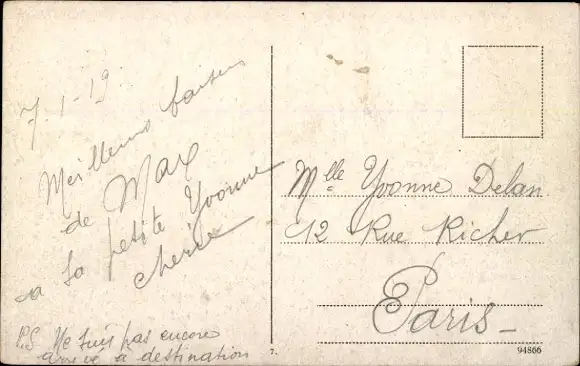 7-1-19
Meilleurs baisers
de Max
a sa petite Yvonne
cherie
P.S Ne suis pas encore
arrivé à destination
Mlle Yvonne Delan
42 Rue Richer
Paris
7.
94866